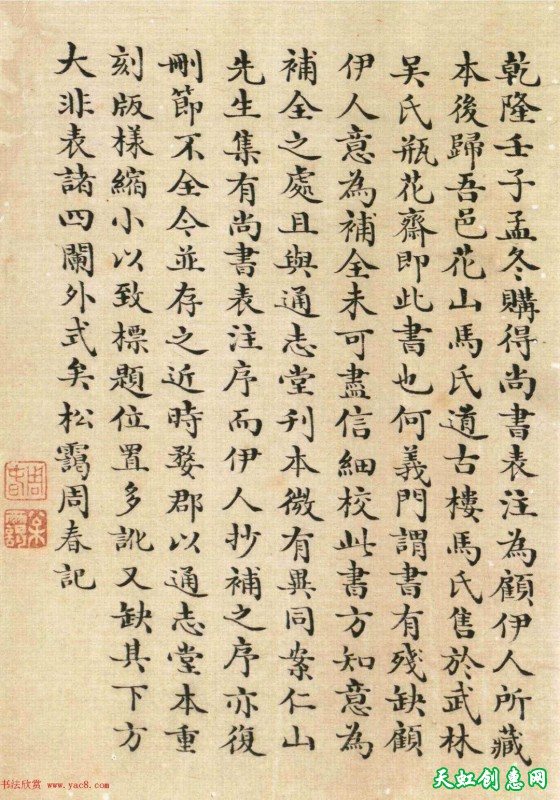 乾隆壬子孟冬購得尚書表注為顧伊人所藏
本後歸吾邑花山馬氏道古樓馬氏售於武林
吳氏瓶花齋即此書也何義門謂書有殘缺顧
伊人意為補全未可盡信細校此書方知意為
補全之處且與通志堂刊本微有異同案仁山
先生集有尚書表注序而伊人抄補之序亦復
刪節不全今並存之近時婺郡以通志堂本重
刻版樣縮小以致標題位置多訛又缺其下方
大非表諸四闌外式矣松靄周春記
周春
松靄
书法欣赏 www.yac8.com
天虹创惠网